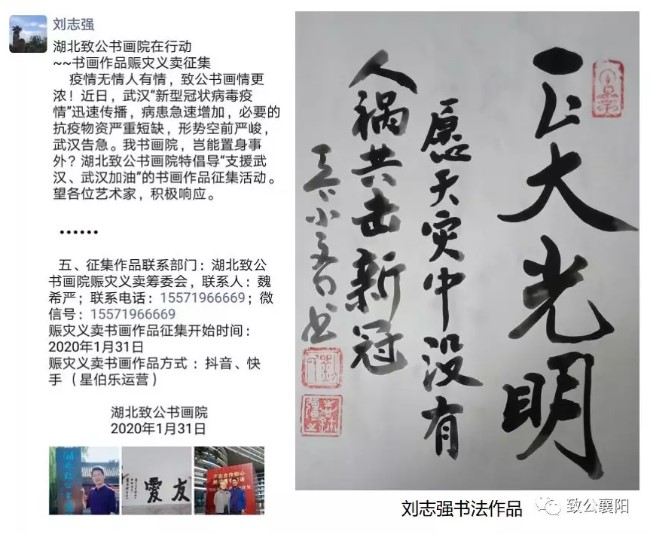 刘志强
湖北致公书画院在行动
~~书画作品赈灾义卖征集
疫情无情人有情，致公书画情更
浓！近日，武汉“新型冠状病毒疫
情”迅速传播，病患急速增加，必要的
抗疫物资严重短缺，形势空前严峻，
武汉告急。我书画院，岂能置身事
外？湖北致公书画院特倡导“支援武
汉、武汉加油”的书画作品征集活动。
望各位艺术家，积极响应。
······
五、征集作品联系部门：湖北致公
书画院赈灾义卖筹委会，联系人：魏
希严；联系电话：15571966669；微
信号：15571966669
赈灾义卖书画作品征集开始时间：
2020年1月31日
赈灾义卖书画作品方式：抖音、快
手（星伯乐运营）
湖北致公书画院
2020年1月31日
友爱
正大光明
愿天灾中没有
人祸共击新冠
刘志强书法作品
致公襄阳